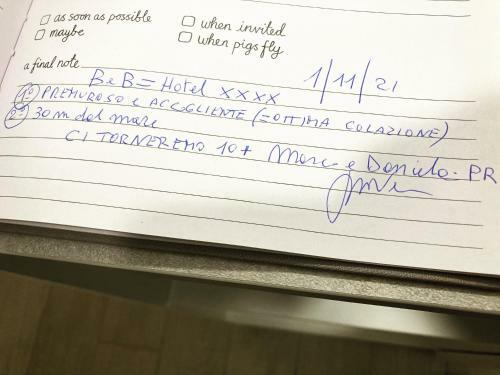 as soon as possible
when invited
maybe
when pigs fly
a final note
1/11/21
B e B = Hotel XXXX
1° PREMUROSO E ACCOGLIENTE (= OTTIMA COLAZIONE)
2° 30 m dal mare
CI TORNEREMO 10+ Marc e Daniela - PR